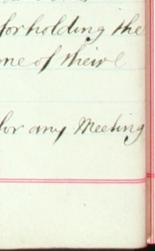 for holding the
one of their
for any Meeting